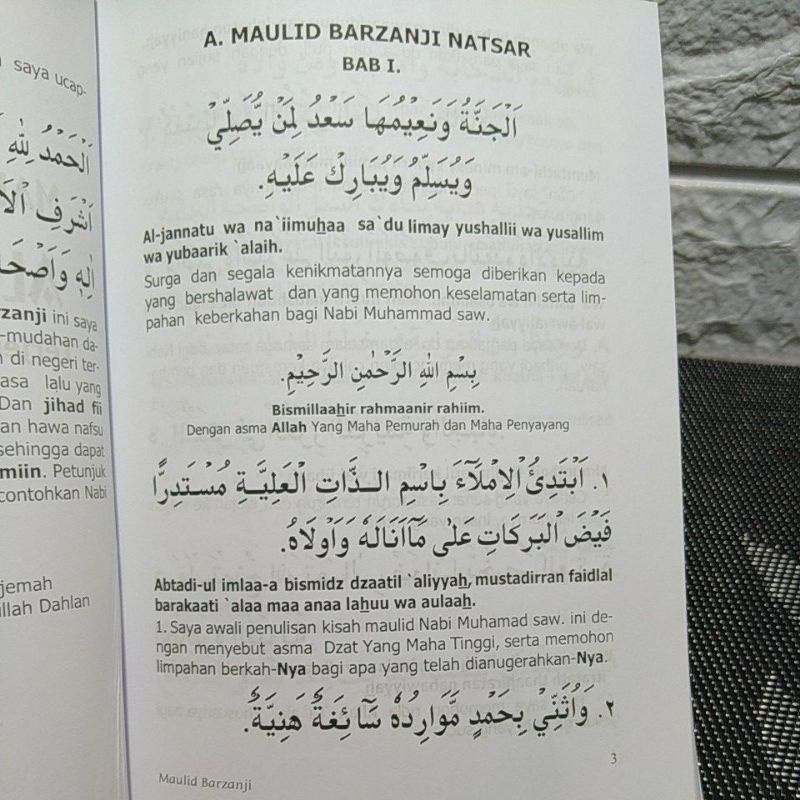 saya ucap-
اَلْحَمْدُ لِلّٰهِ
اَشْرَفِ الْاَ
اٰلِهٖ وَاَصْحَا
rzanji ini saya
-mudahan da-
n di negeri ter-
asa lalu yang
Dan jihad fii
an hawa nafsu
sehingga dapat
miin. Petunjuk
contohkan Nabi
jemah
illah Dahlan
A. MAULID BARZANJI NATSAR
BAB I.
اَلْجَنَّةُ وَنَعِيْمُهَا سَعْدٌ لِمَنْ يُصَلِّيْ
وَيُسَلِّمُ وَيُبَارِكْ عَلَيْهِ.
Al-jannatu wa na`iimuhaa sa`du limay yushallii wa yusallim
wa yubaarik `alaih.
Surga dan segala kenikmatannya semoga diberikan kepada
yang bershalawat dan yang memohon keselamatan serta lim-
pahan keberkahan bagi Nabi Muhammad saw.
بِسْمِ اللهِ الرَّحْمٰنِ الرَّحِيْمِ.
Bismillaahir rahmaanir rahiim.
Dengan asma Allah Yang Maha Pemurah dan Maha Penyayang
١. اَبْتَدِئُ الْاِمْلَآءَ بِاسْمِ الذَّاتِ الْعَلِيَّةِ مُسْتَدِرًّا
فَيْضَ الْبَرَكَاتِ عَلٰى مَآاَنَالَهُ وَاَوْلَاهُ.
Abtadi-ul imlaa-a bismidz dzaatil `aliyyah, mustadirran faidlal
barakaati `alaa maa anaa lahuu wa aulaah.
1. Saya awali penulisan kisah maulid Nabi Muhamad saw. ini de-
ngan menyebut asma Dzat Yang Maha Tinggi, serta memohon
limpahan berkah-Nya bagi apa yang telah dianugerahkan-Nya.
٢. وَاُثَنِّيْ بِحَمْدٍ مَّوَارِدُهُ سَآئِغَةٌ هَنِيَّةٌ.
3
Maulid Barzanji